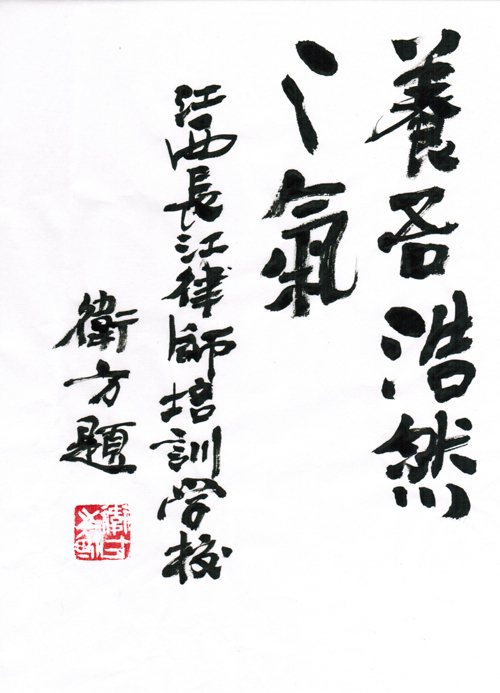 養吾浩然
之氣
江西長江律師培訓学校
衛方題